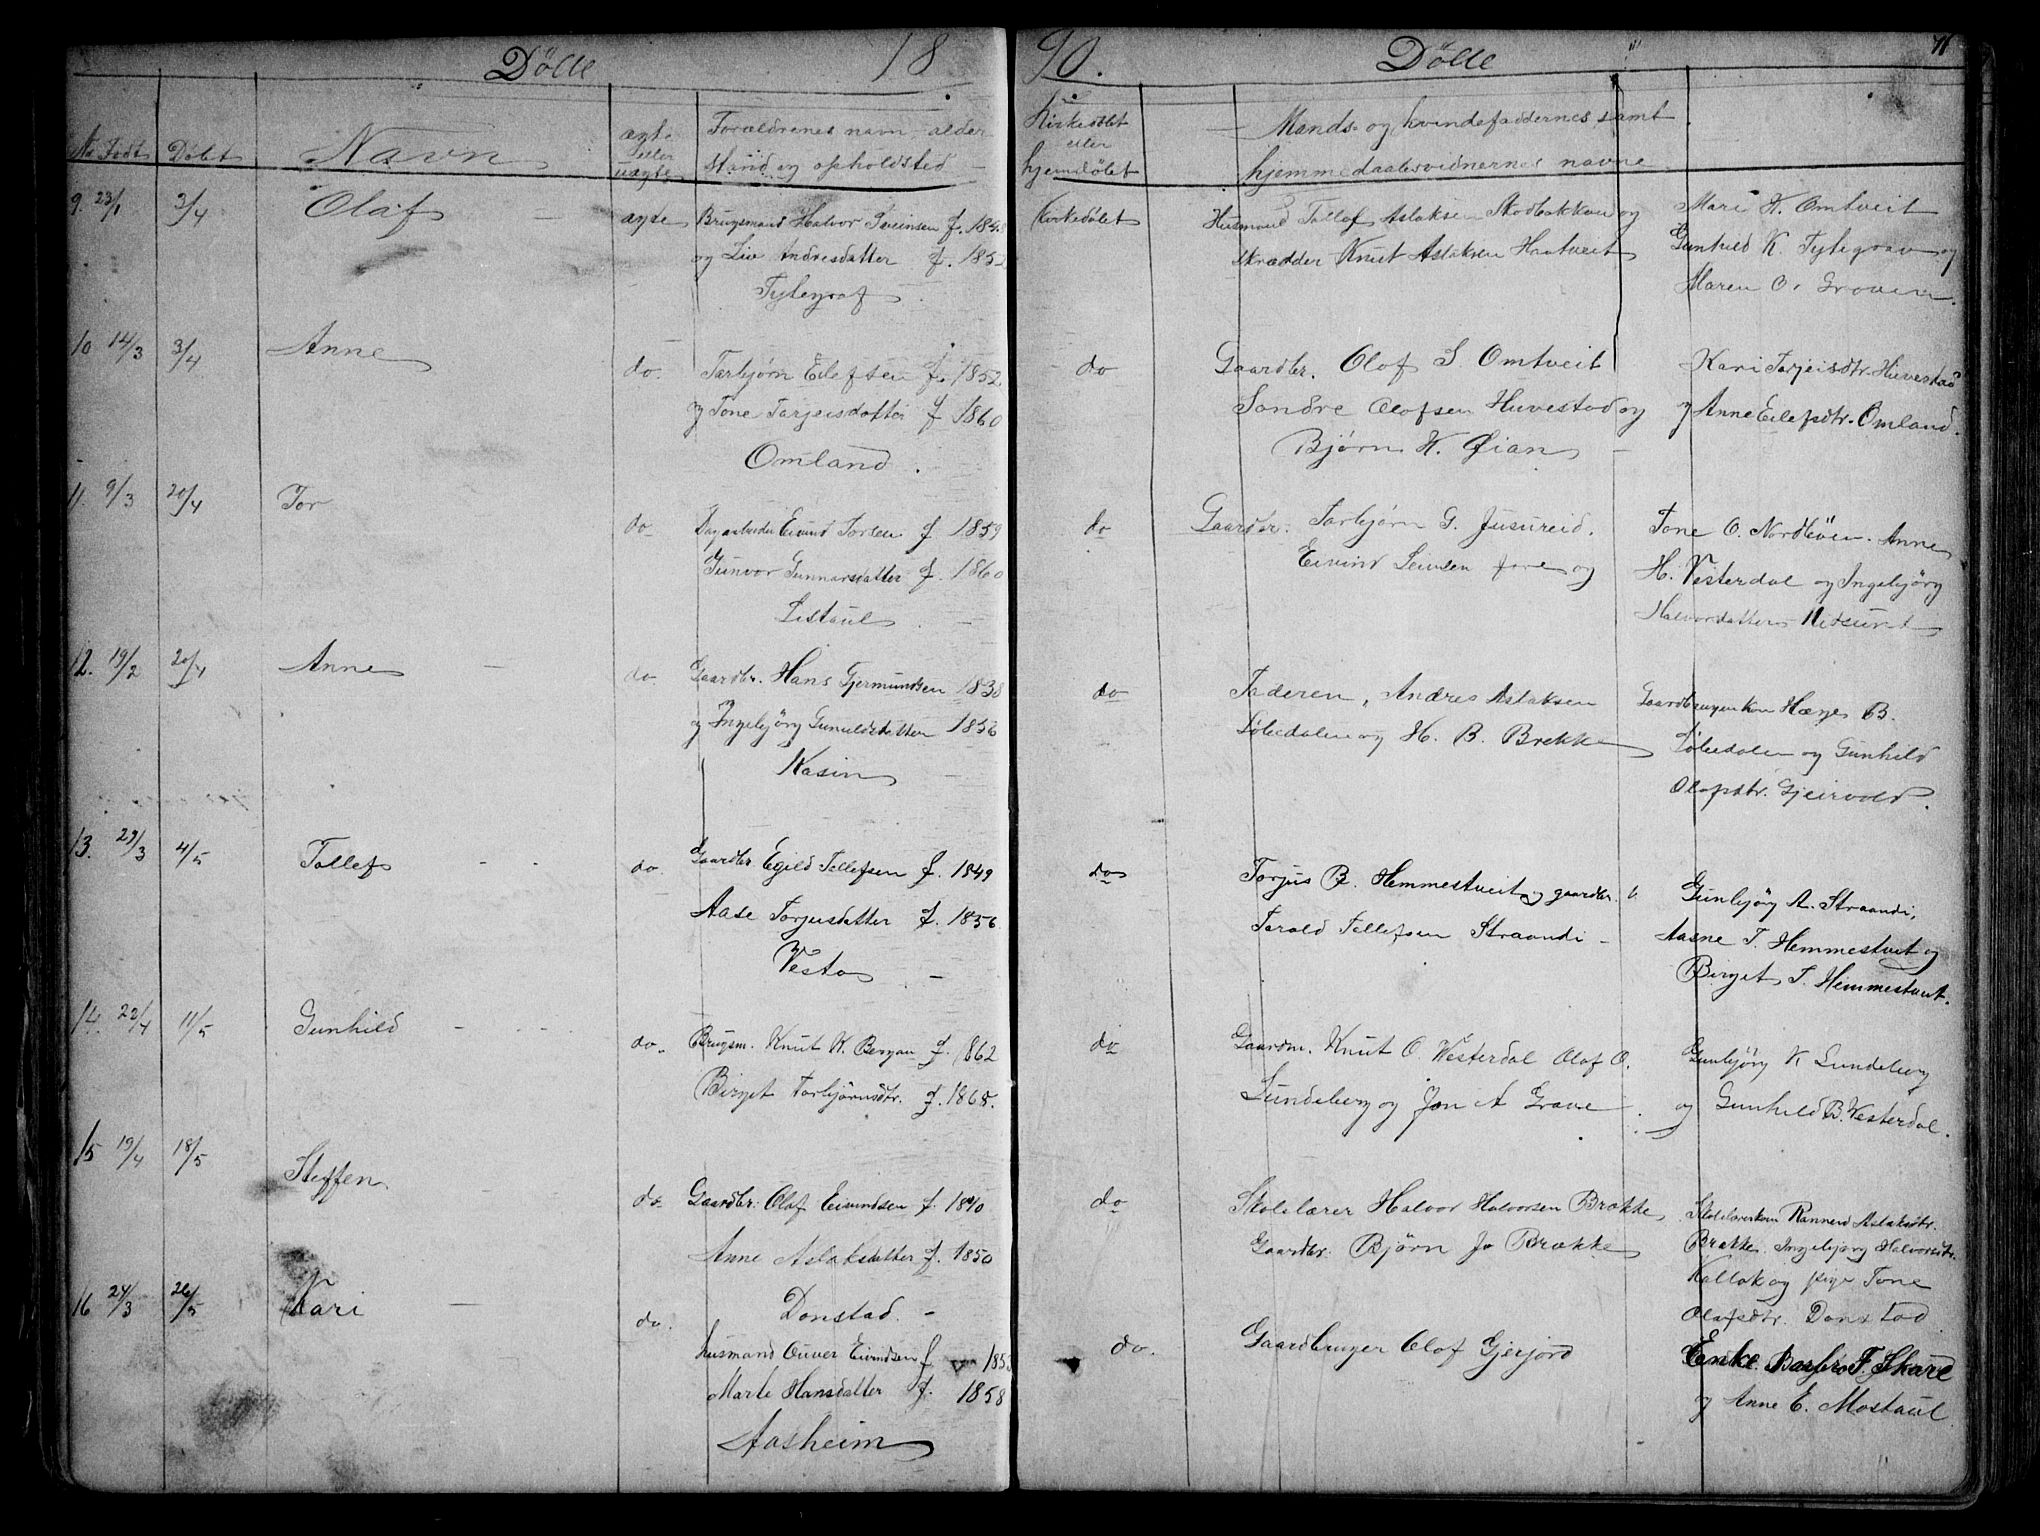 Dölte 18
90. Dölte
No Födt Dobt Navn ægte eller uægte Forældrenes navn, alder
stand og opholdsted
Kirkedöbt eller hjemdöbt Mands- og kvindefaddernes samt
hjemmedaabsvidnernes navne
9. 23/1 3/4 Olaf ægte Brugsmand Halvor
og Liv Andresdatter f. 1852
Tytegraf
Kirkedöbt Husmand Tollef Aslaksen og
skrædder Knut Aslaksen Hautveit
Mari K. Omtveit
Gunhild K. Tytegrav og
Maren O. Groven.
10 14/3 3/4 Anne do. Tarbjørn Eilefsen f. 1852
og Tone Tarjeisdatter f 1860
Omland.
do Gaardbr. Olof S. Omtveit
Sondre Olofsen Huvestad og
Bjørn K. Øian
Kari Tarjeisdtr. Huvestad
og Anne Eilefsdtr. Omland.
11. 9/3 20/4 Tor do Dagarbeider Eivind Torsen f. 1859
Gunvor Gunnarsdatter f. 1860
Listaul
do Gaardbr. Tarbjørn G. Jusureid.
Eivind Leivsen Jore og
Tone O. Nordböen. Anne
H. Vesterdal og Ingebjörg
Halvorsdatter
12. 19/2 20/4 Anne do. Gaardbr. Hans Gjermundsen 1838
og Ingebjörg 1856
Kasin
do Faderen, Andres Aslaksen
og H. B. Brekke
Hæge B.
og Gunhild
Olafsdtr. Gjeirvold.
13. 29/3 4/5 Tollef do. Gaardbr. Egild Tollefsen f. 1849
Aase Torjusdatter f. 1856
Vesta
do Torjus B. Hemmestveit og gaardbr.
Tarald Tollefsen Straandi
Gunbjörg A. Straandi,
Aasne T. Hemmestveit og
Birget T. Hemmestveit.
14. 22/4 11/5 Gunhild do. Brugsm. Knut K. Bergan f. 1862
Birget Torbjörnsdtr. f. 1865.
do Gaardm. Knut O. Vesterdal Olaf O.
Lundeberg og Jon A Grave
Gunbjörg K Lundeberg
og Gunhild B. Vesterdal.
15 19/4 18/5 Steffen do Gaardbr. Olaf Eivindsen f. 1840
Anne Aslaksdatter f. 1850
Donstad.
do Skolelærer Halvor Halvorsen Brække,
Gaardbr. Bjørn Jo Brække
Skolelærerkon Ranneid Aslaksdtr.
Brække. Ingebjörg Halvorsdtr.
Kallak og pige Tone
Olafsdtr. Donstad
16 24/3 26/5 Kari do. husmand Ouver Eivindsen f 1853
Marte Hansdatter f. 1858
Aasheim
do. Gaardbruger Olaf Gjerjord
Enke Barbro F. Skare
og Anne E. Mostaul